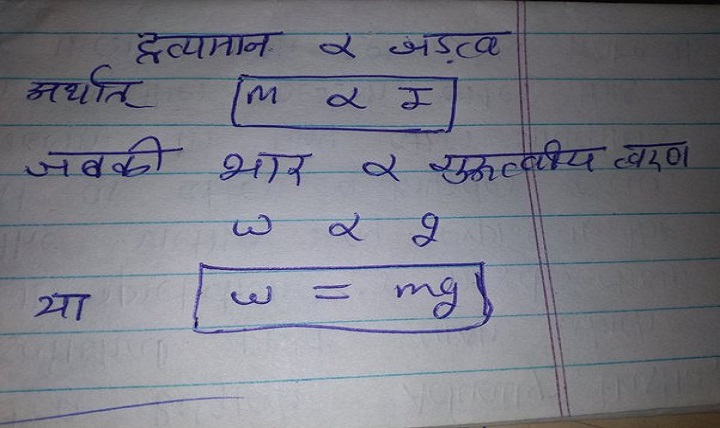 द्रव्यमान ∝ जड़त्व
अर्थात् m ∝ I
जबकी भार ∝ गुरूत्वीय त्वरण
w ∝ g
या w = mg